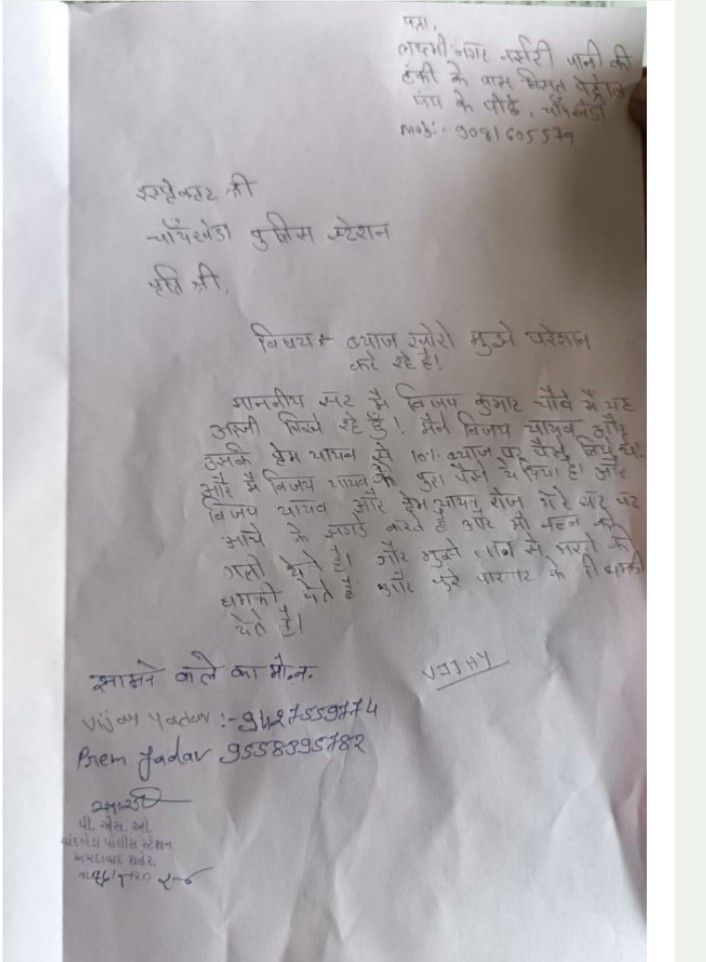 पता,
लक्ष्मी नगर नर्सरी पानी की
टंकी के पास पेट्रोल
पंप के पीछे, चाँदखेडा
Mob:- 9081605579
इस्पेक्टर श्री
चाँदखेडा पुलिस स्टेशन
प्रति श्री,
विषय:- ब्याज खोरो मुझे परेशान
कर रहे है!
माननीय सर मै विजय कुमार चौबे मै यह
अरजी लिख रहे हुँ! मैने विजय यादव और
उसकी प्रेम यादव से 10% ब्याज पर पैसे लिये थे!
और मै विजय यादव के पुरा पैसे दे दिया है। और
विजय यादव और प्रेम यादव रोज मेरे घर पर
आये के झगडे करते है और माँ बहन की
गाली देते है। और मुझे जान से मारने की
धमकी देते है और पुरे परिवार के भी धमकी
देते है।
सामने वाले का मो.न.
VIJAY
Vijay Yadav :- 9427559774
Prem Yadav 9558395782
પી. એસ. ઓ.
ચાંદખેડા પોલીસ સ્ટેશન
અમદાવાદ શહેર.